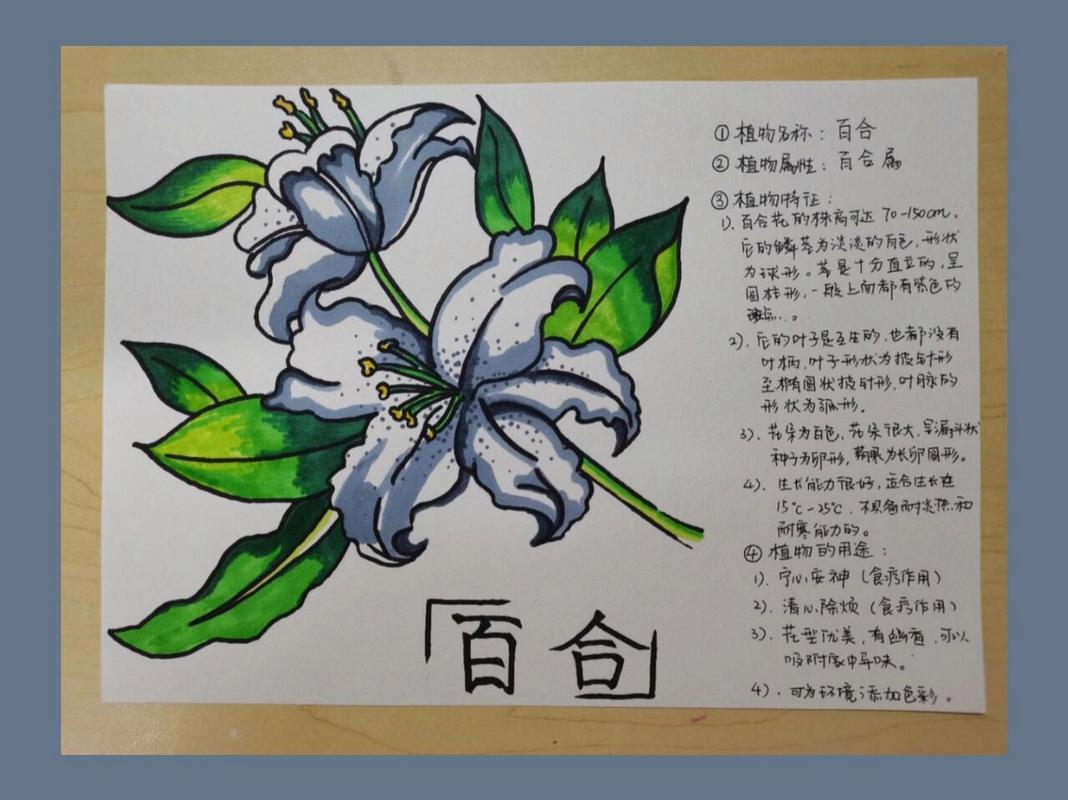 ① 植物名称：百合
② 植物属性：百合属
③ 植物特征：
1). 百合花的株高可达 70-150cm,
它的鳞茎为淡淡的白色,形状
为球形。茎是十分直立的,呈
圆柱形,一般上面都有紫色的
斑点...。
2). 它的叶子是互生的,也都没有
叶柄,叶子形状为披针形
至椭圆状披针形,叶脉的
形状为弧形.
3). 花朵为白色,花朵很大,呈漏斗状
种子为卵形,蒴果为长卵圆形。
4). 生长能力很好,适合生长在
15℃-25℃.不具备耐炎热和
耐寒能力的。
④ 植物的用途：
1). 宁心安神(食疗作用)
2). 清心除烦(食疗作用)
3). 花型优美,有幽香,可以
吸附家中异味。
4). 可为环境添加色彩。
「百合」